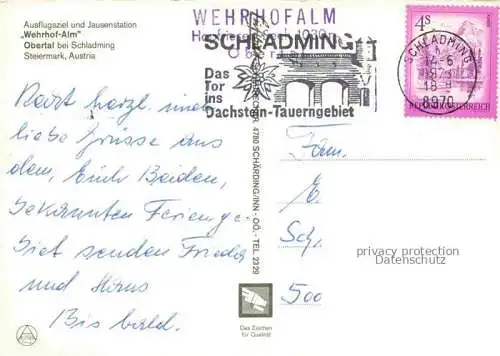 Ausflugsziel und Jausenstation
„Wehrhof-Alm"
Obertal bei Schladming
Steiermark, Austria
WEHRHOFALM
SCHLADMING
Das
Tor
ins
Dachstein-Tauerngebiet
4S
SCHLADMING
14-6
18-
8970
REPUBLIK ÖSTERREICH
4780 SCHÄRDING/INN - OÖ. - TEL. 2329
liebe Grüsse aus
dem, Euch Beiden,
bekannten Ferienge-
biet senden
und
Bis bald.
Fam.
E.
Sch.
500
privacy protection
Datenschutz
Das Zeichen
für Qualität